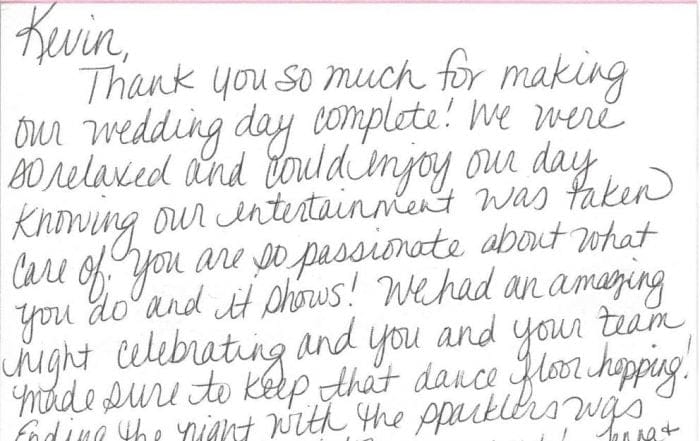 Kevin,
Thank you so much for making
our wedding day complete! We were
so relaxed and could enjoy our day
knowing our entertainment was taken
care of. You are so passionate about what
you do and it shows! We had an amazing
night celebrating and you and your team
made sure to keep that dance floor hopping!
Ending the night with the sparklers was